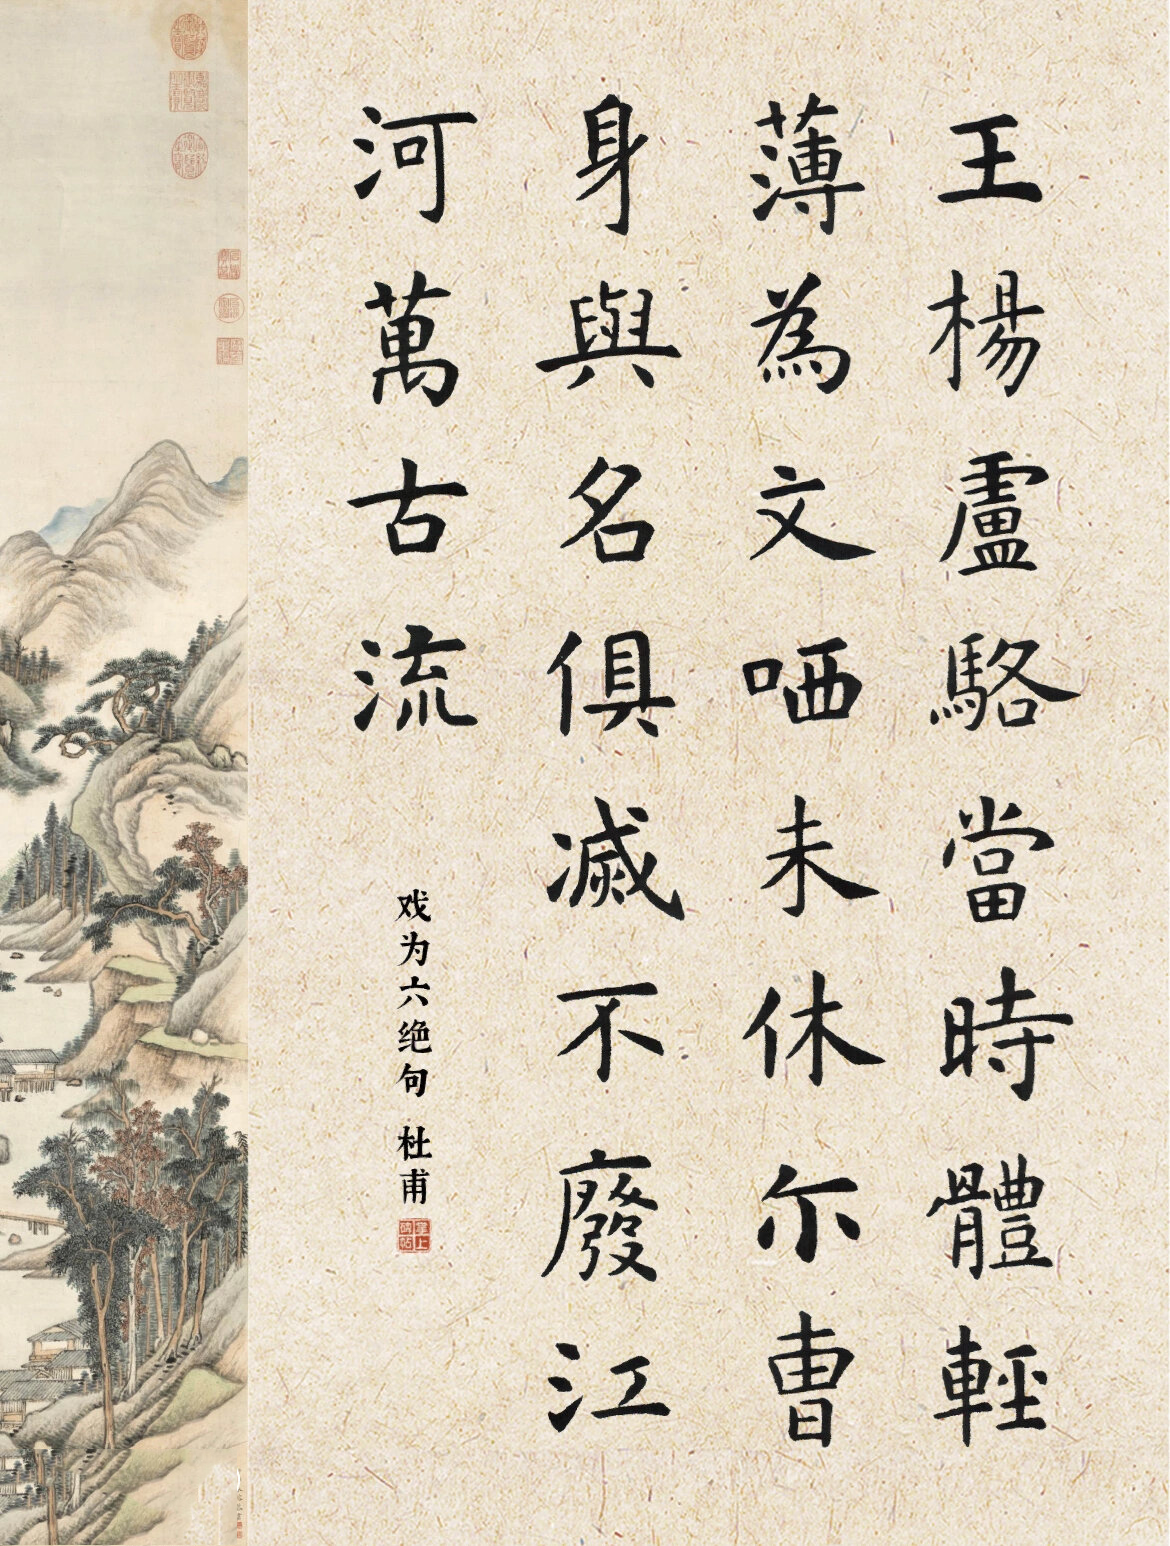 王楊盧駱當時體輕
薄為文哂未休尒曹
身與名俱滅不廢江
河萬古流
戏为六绝句 杜甫
掌上碑帖